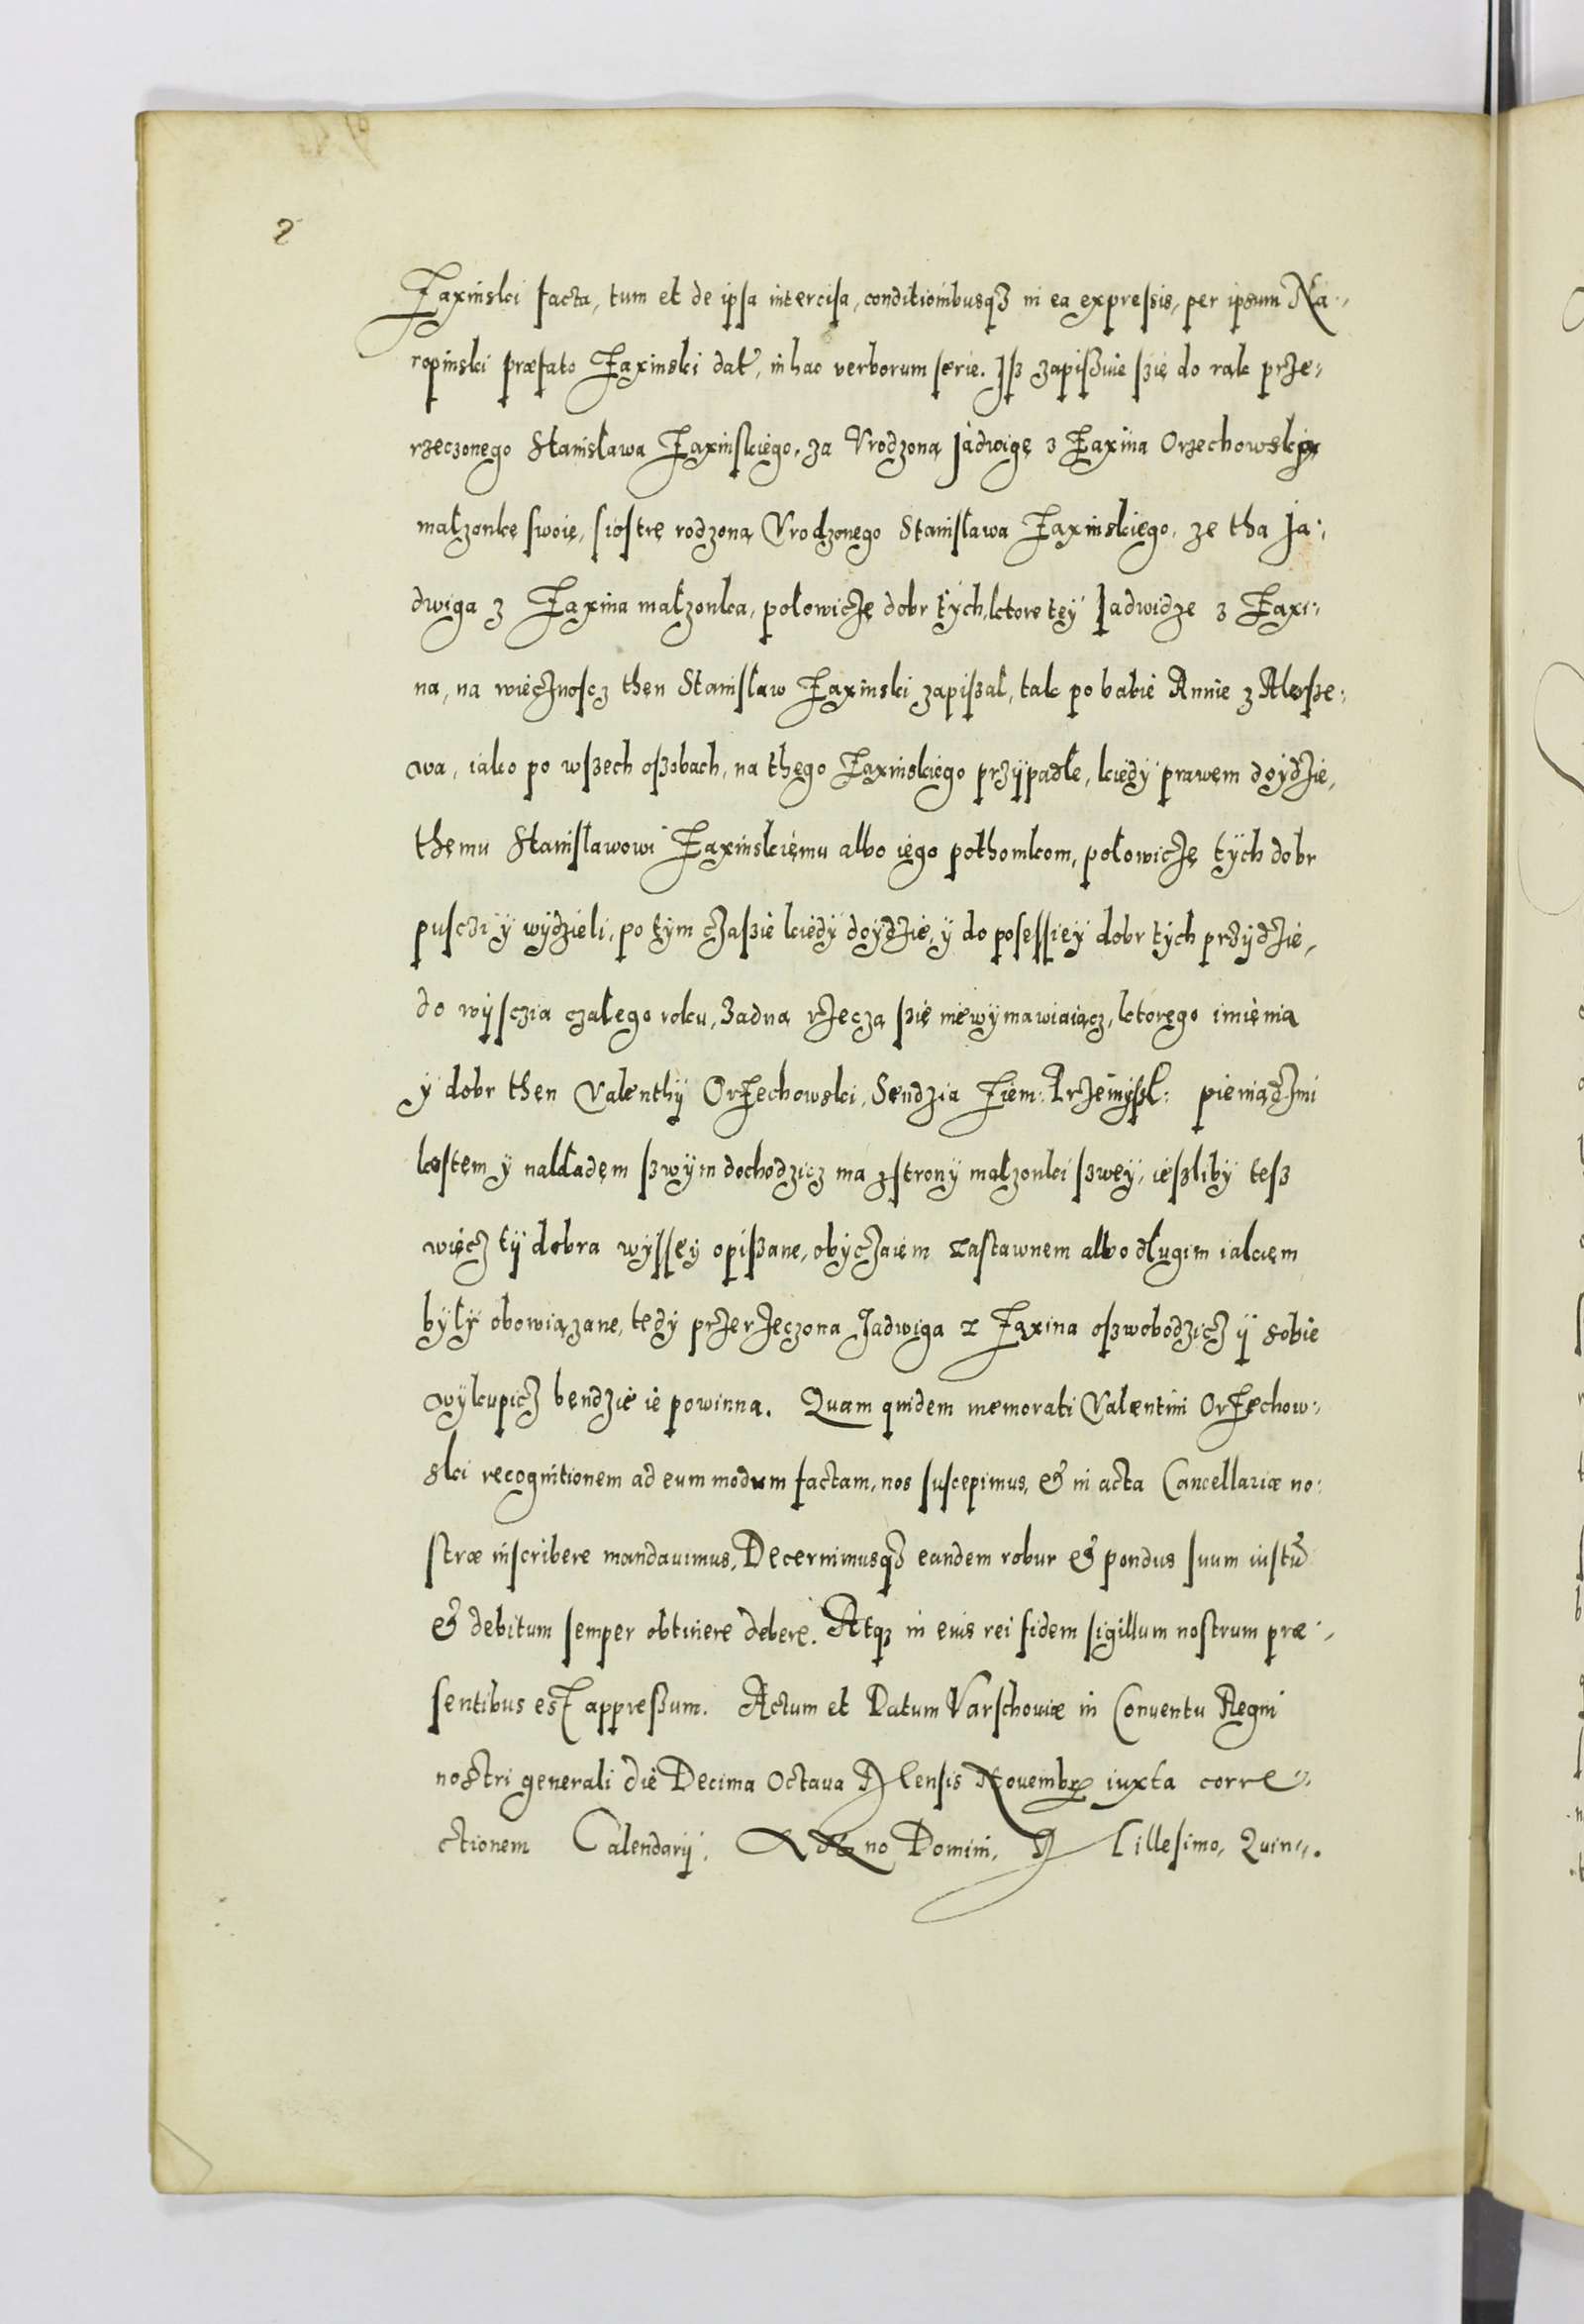 2
Zaxinski facta, tum et de ipsa intercisa, conditionibusqȝ in ea expressis, per ipsum Na-
ropinski præfato Zaxinski dat̃, in hac verborum serie. Jß zapißuie ßię do rąk prze-
rzeczonego Stanisława Zaxinskiego, za Vrodzoną Jadwigę z Zaxina Orzechowską
małzonkę swoię, siostrę rodzoną Vrodzonego Stanisława Zaxinskiego, ze tha Ja-
dwiga z Zaxina małzonka, połowiczę dobr tÿch, ktore teÿ Jadwidze z Zaxi-
na, na wiecznoscz then Stanisław Zaxinski zapißał, tak po babie Annie z
wa, iako po wßech oßobach, na thego Zaxinskiego przÿpadłe, kiedÿ prawem doÿdzie,
themu Stanisławowi Zaxinskiemu albo iego pothomkom, połowiczę tÿch dobr
pusczi ÿ wÿdzieli, po tÿm czaßie kiedÿ doÿdzie, ÿ do posessieÿ dobr tÿch prziÿdzie,
do wÿsczia czałego roku, Zadną rzeczą ßię niewÿmawiaiącz, ktorego imienia
ÿ dobr then Valenthÿ Orzechowski, Sendzia Ziem: Przemÿsl: pieniądzmi
kostem ÿ nakładem ßwÿm dochodzicz ma z strony małzonki ßweÿ, ießlibÿ teß
więcz tÿ dobra wÿsseÿ opißane, obÿczaiem zastawnem albo długim iakiem
bÿłÿ obowiązane, tedÿ przerzeczona Jadwiga z Zaxina oßwobodzicz ÿ sobie
wÿkupicz bendzie ie powinna. Quam quidem memorati Valentini Orzechow-
ski recognitionem ad eum modum factam, nos suscepimus, & in acta Cancellariæ no-
stræ inscribere mandauimus, Decernimusqȝ eandem robur & pondus suum iustũ
& debitum semper obtinere debere. Atqȝ in eius rei fidem sigillum nostrum præ-
sentibus est appreßum. Actum et Datum Varschouiæ in Conuentu Regni
nostri generali die Decima Octaua Mensis Nouembr iuxta corre-
ctionem Calendarij, Anno Domini, Millesimo, Quin-